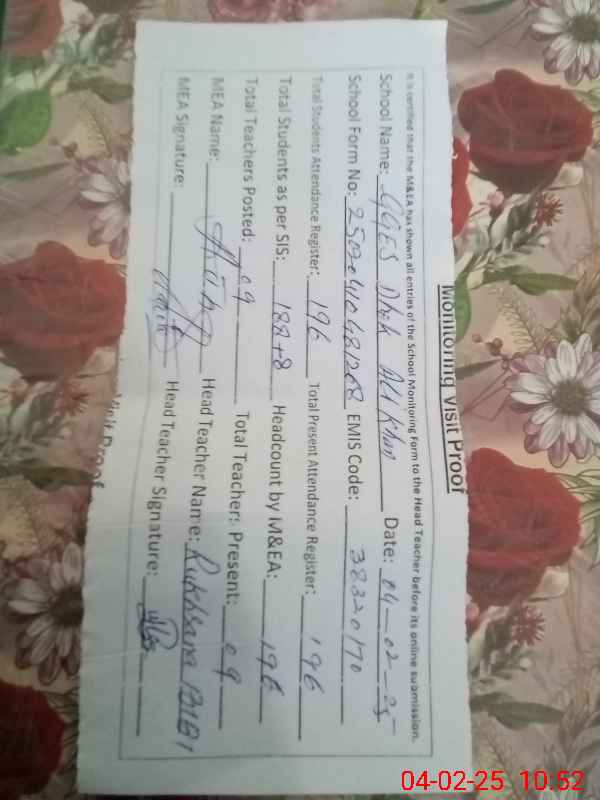 Monitoring Visit Proof
It is certified that the M&EA has shown all entries of the School Monitoring Form to the Head Teacher before its online submission.
School Name: GGES Dhok Ali Khan Date: 04-02-25
School Form No: EMIS Code: 38320170
Total Students Attendance Register: 196 Total Present Attendance Register: 196
Total Students as per SIS: 188+8 Headcount by M&EA: 196
Total Teachers Posted: 09 Total Teachers Present: 09
MEA Name: Head Teacher Name: Rukhsana BiBi
MEA Signature: Head Teacher Signature:
Visit Proof
04-02-25 10:52